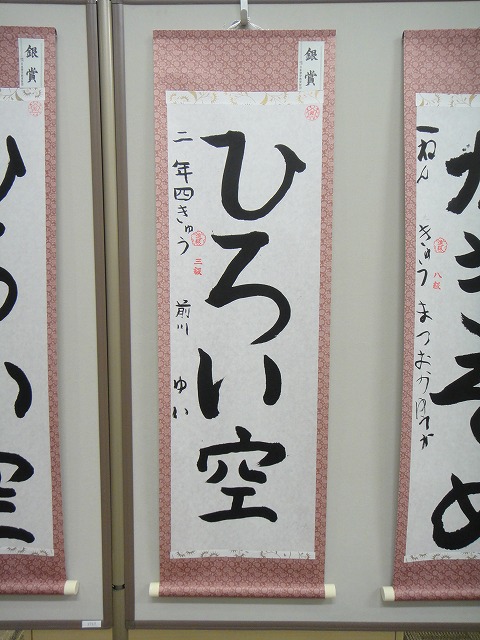 銀賞
ひろい空
二年四きゅう
三級
前川 ゆい
銀賞
ろい空
かきぞめ
一ねん
きゅう
八級
まつおか